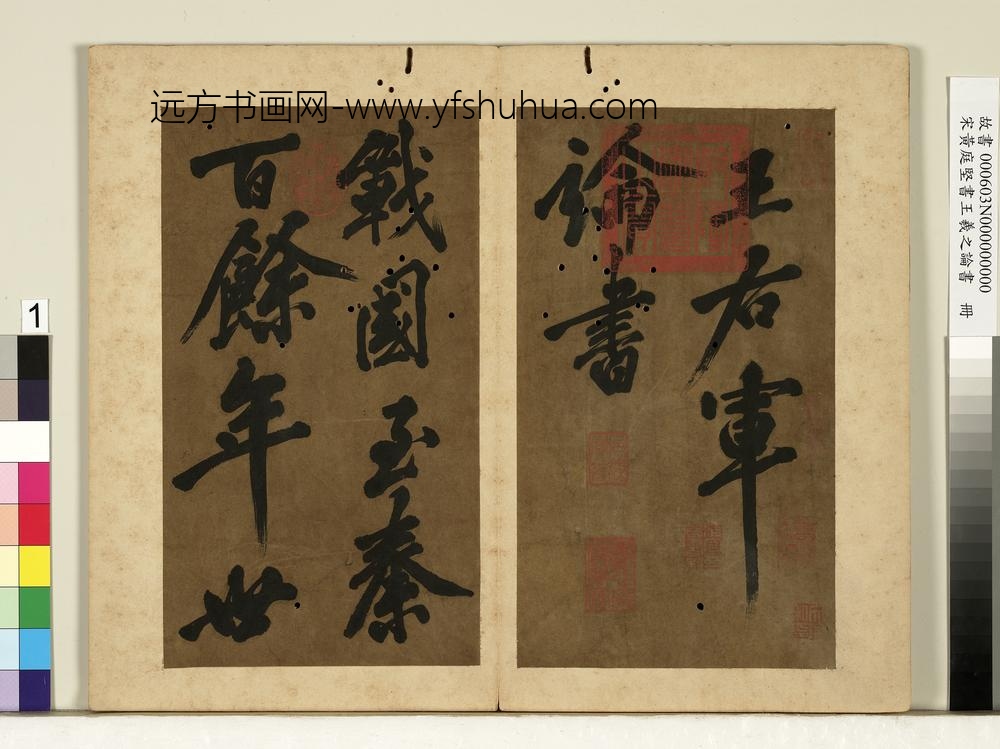 远方书画网-www.yfshuhua.com
王右軍
論書
戰國至秦
百餘年世
故書 000603N000000000
宋黃庭堅書王羲之論書 冊
1